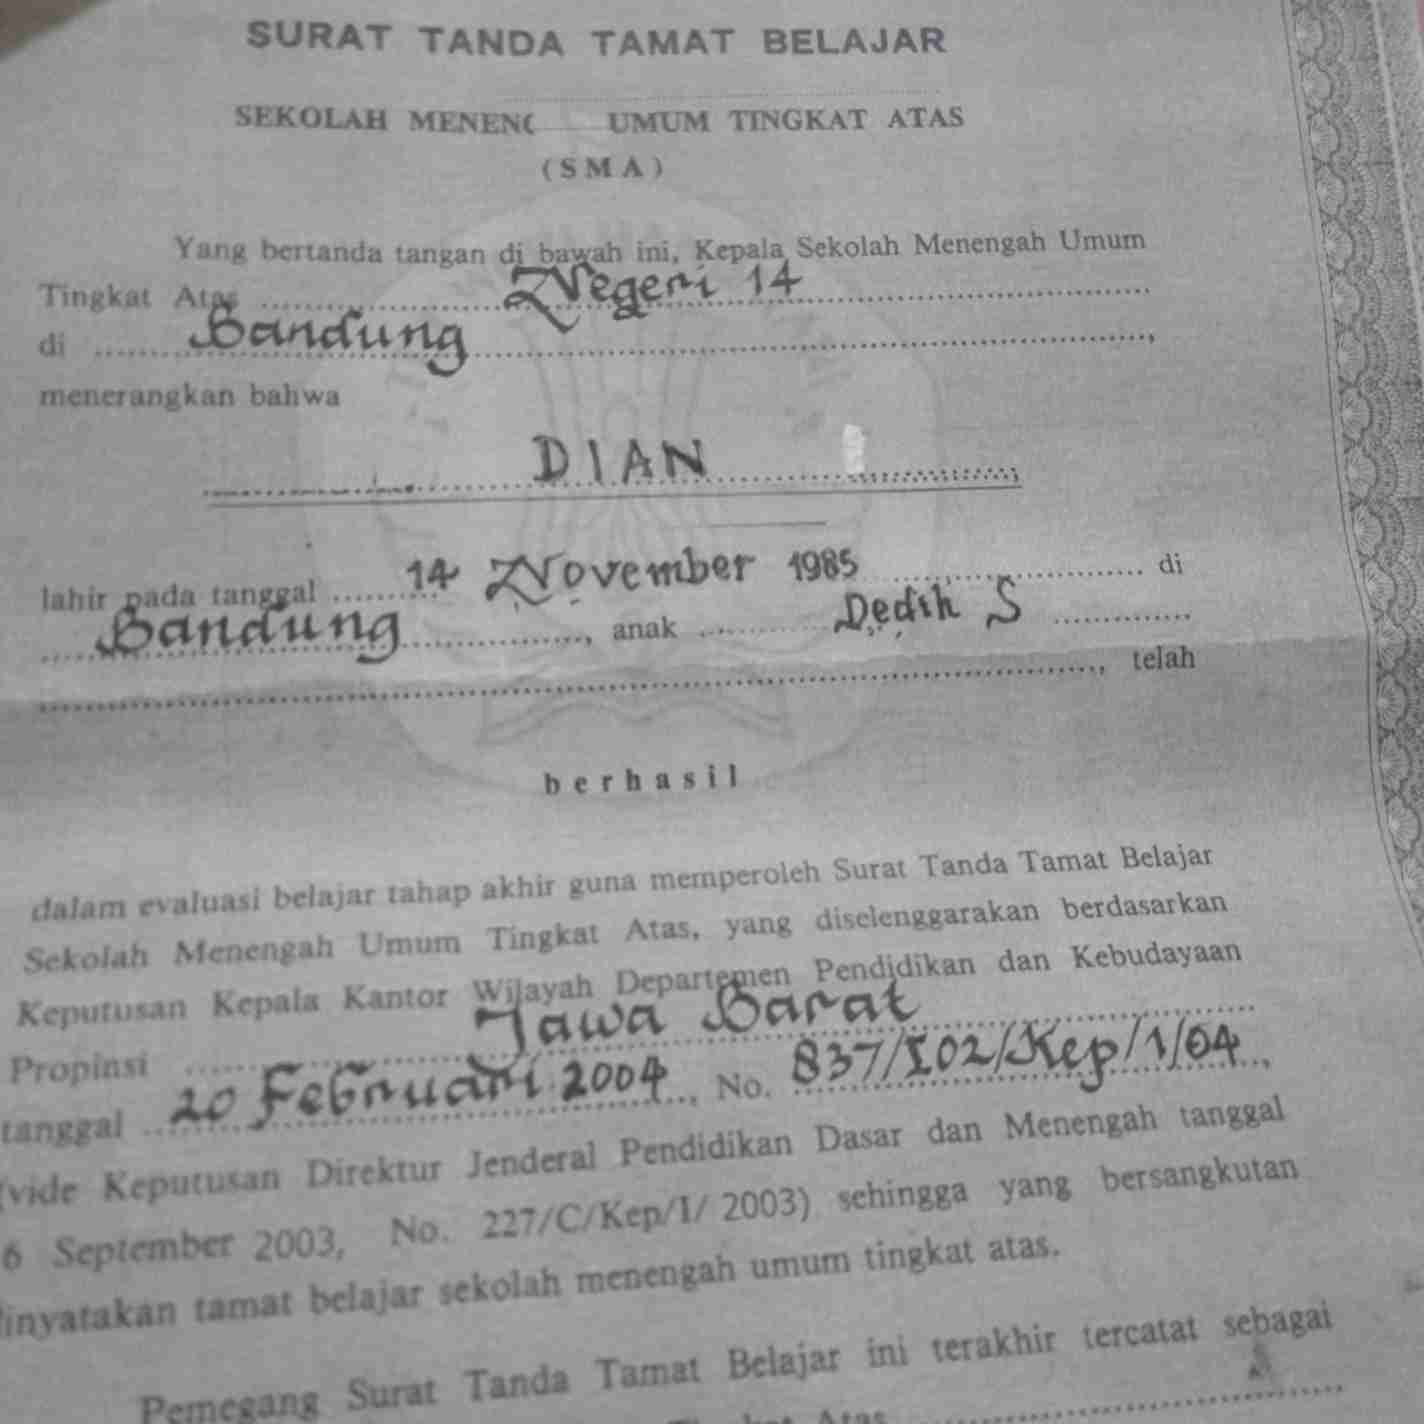 SURAT TANDA TAMAT BELAJAR
SEKOLAH MENENG UMUM TINGKAT ATAS
(SMA)
Yang bertanda tangan di bawah ini, Kepala Sekolah Menengah Umum
Tingkat Atas Negeri 14
di Bandung,
menerangkan bahwa
DIAN
lahir pada tanggal 14 November 1985 di
Bandung, anak Dedih S
, telah
berhasil
dalam evaluasi belajar tahap akhir guna memperoleh Surat Tanda Tamat Belajar
Sekolah Menengah Umum Tingkat Atas, yang diselenggarakan berdasarkan
Keputusan Kepala Kantor Wilayah Departemen Pendidikan dan Kebudayaan
Propinsi Jawa Barat
tanggal 20 Februari 2004, No. 837/I02/Kep/1/04,
(vide Keputusan Direktur Jenderal Pendidikan Dasar dan Menengah tanggal
6 September 2003, No. 227/C/Kep/I/ 2003) sehingga yang bersangkutan
dinyatakan tamat belajar sekolah menengah umum tingkat atas.
Pemegang Surat Tanda Tamat Belajar ini terakhir tercatat sebagai
Atas